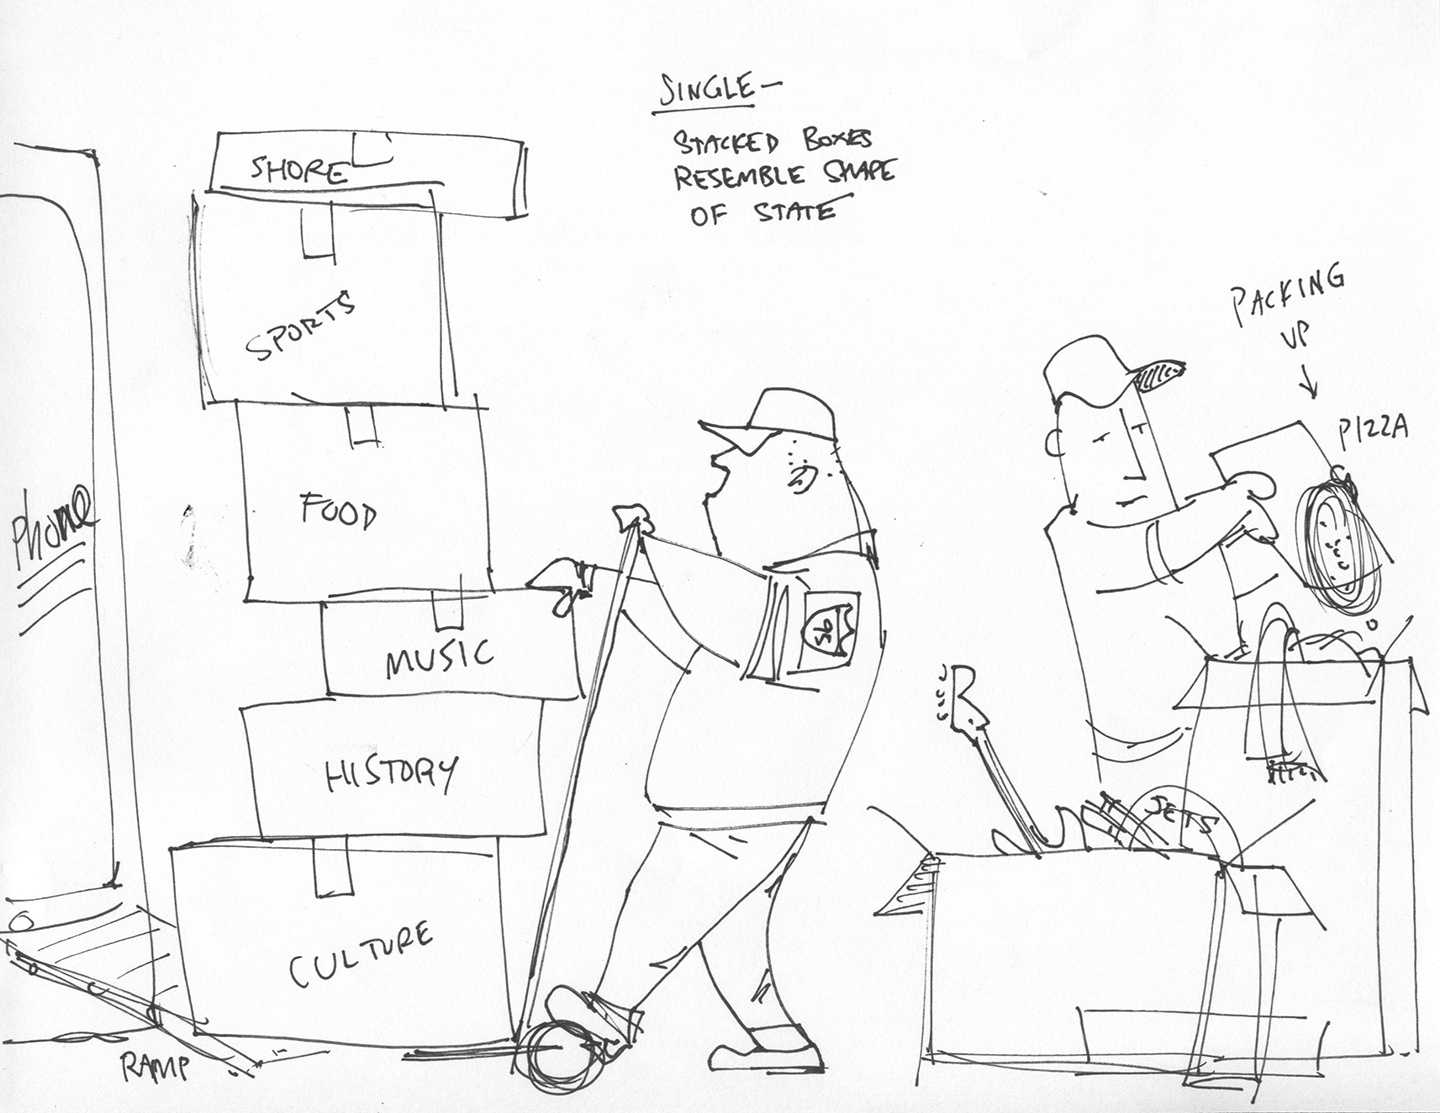 SINGLE—
STACKED BOXES
RESEMBLE SHAPE
OF STATE
SHORE
SPORTS
FOOD
MUSIC
HISTORY
CULTURE
Phone
RAMP
PACKING
UP
PIZZA
JETS